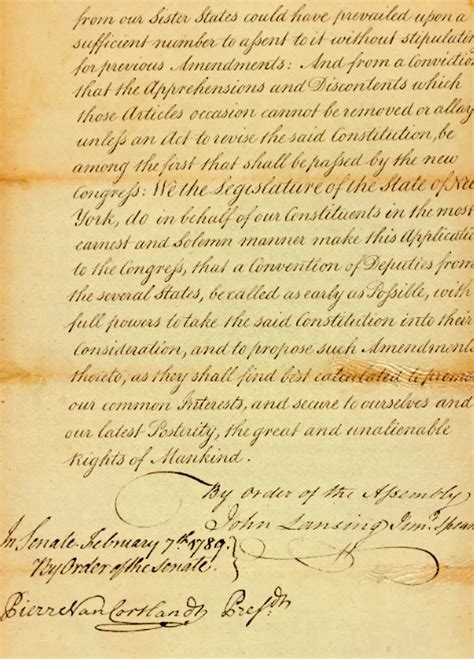 from our Sister States could have prevailed upon a
sufficient number to aſsent to it without stipulatio
for previous Amendments: And from a Convictio
that the Apprehensions and Discontents which
those Articles occasion cannot be removed or allay
unleſs an Act to revise the said Constitution, be
among the first that shall be paſsed by the new
Congreſs: We the Legislature of the State of New
York, do in behalf of our Constituents in the most
earnest and Solemn manner make this Applicatio
to the Congreſs, that a Convention of Deputies from
the several States, be called as early as Poſsible, with
full powers to take the said Constitution into their
Consideration, and to propose such Amendments
thereto, as they shall find best calculated to promo
our common Interests, and secure to ourselves and
our latest Posterity, the great and unalienable
Rights of Mankind.
By Order of the Aſsembly,
John Lansing Junr. Speak
In Senate February 7th. 1789.
By Order of the Senate.
Pierre Van Cortlandt Presdt.